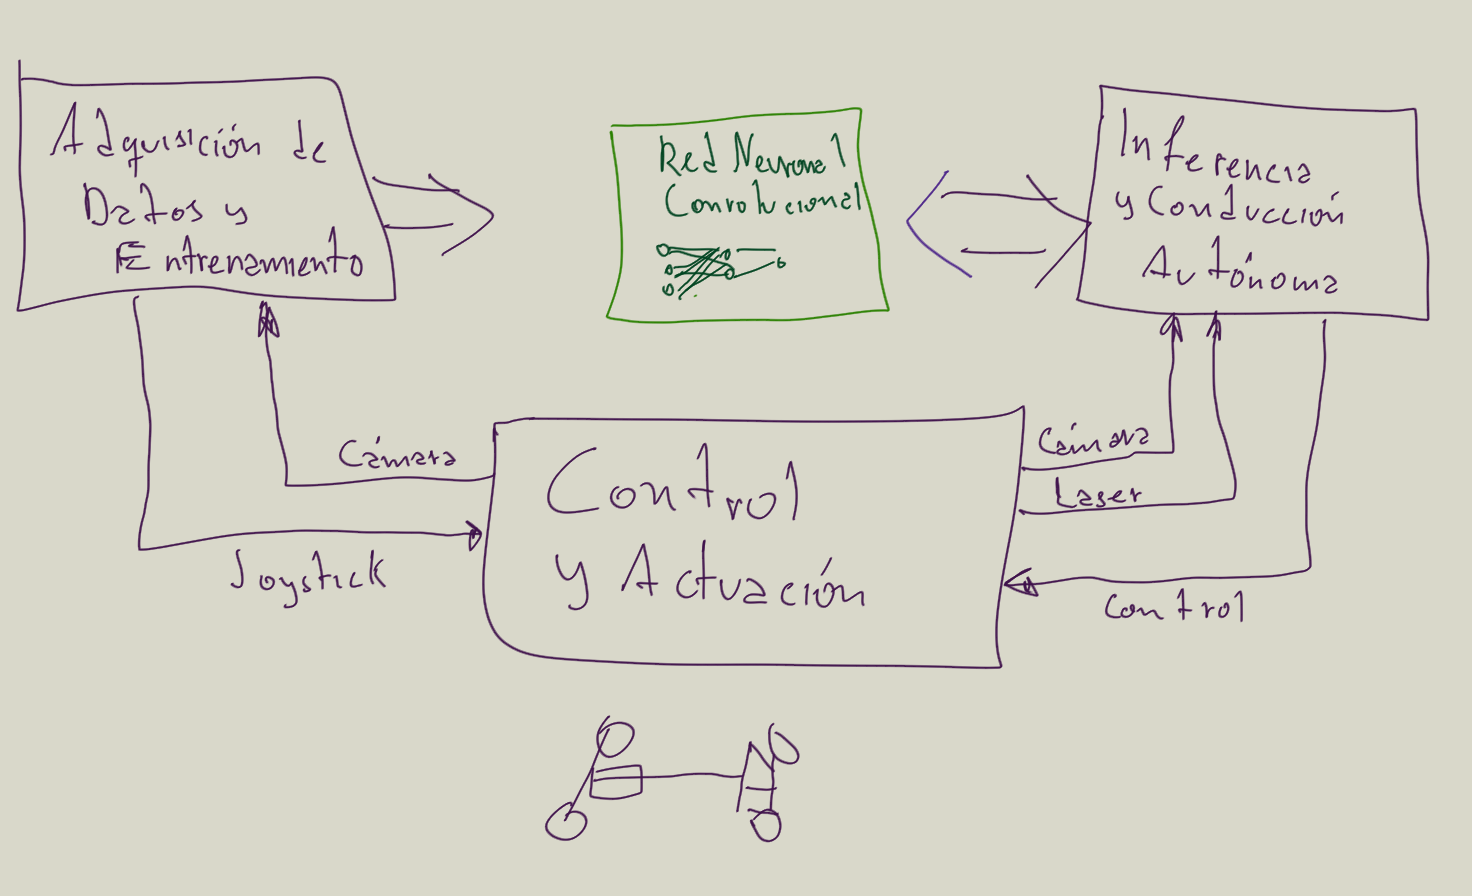 Adquisición de
Datos y
Entrenamiento
Red Neuronal
Convolucional
Inferencia
y Conducción
Autónoma
Cámara
Joystick
Control
y Actuación
Cámara
Laser
Control